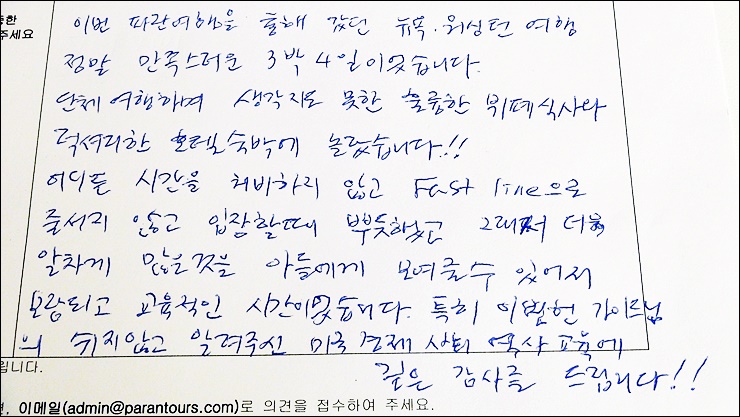 한
주세요
이번 파란여행을 통해 갔던 뉴욕·워싱턴 여행
정말 만족스러운 3박 4일이었습니다.
단체여행하며 생각지도 못한 훌륭한 뷔페식사와
럭셔리한 호텔숙박에 놀랐습니다!!
어디든 시간을 허비하지 않고 Fast line으로
줄서지 않고 입장할때 뿌듯했고 그래서 더욱
알차게 많은것을 아들에게 보여줄수 있어서
보람되고 교육적인 시간이었습니다. 특히 이범헌 가이드님
의 쉬지않고 알려주신 미국 경제 사회 역사 교육에
깊은 감사를 드립니다!!
립니다.
이메일(admin@parantours.com)로 의견을 접수하여 주세요.